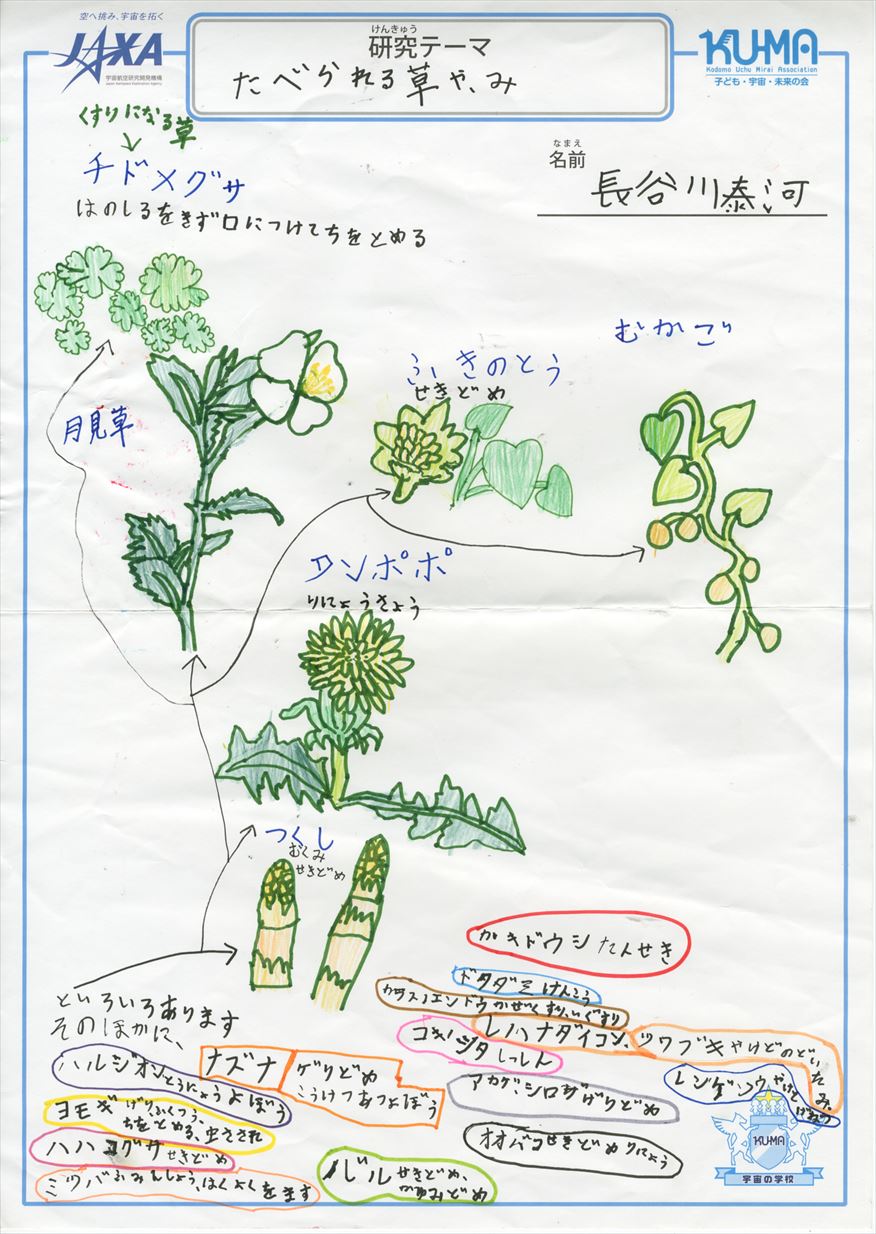 空へ挑み、宇宙を拓く
JAXA
宇宙航空研究開発機構
Japan Aerospace Exploration Agency
けんきゅう
研究テーマ
たべられる草や、み
KU-MA
Kodomo Uchu Mirai Association
子ども・宇宙・未来の会
なまえ
名前
長谷川泰河
くすりになる草
チドメグサ
はのしるをきず口につけてちをとめる
むかご
ふきのとう
せきどめ
月見草
タンポポ
りにょうさよう
つくし
むくみ
せきどめ
カキドウシ たんせき
ドクダミ けんこう
カラスノエンドウ かぜぐすり、いぐすり
といろいろあります
そのほかに、
ユキノシタ しっしん
ハナダイコン、
ツワブキ やけどのどいたみ、
ハルジオン とうにょうよぼう
ナズナ
ゲリどめ
こうけつあつよぼう
アカザ・シロザ げりどめ
レンゲソウ やけど げねつ
ヨモギ げりふくつう
ちをとめる、虫さされ
ハハコグサ せきどめ
オオバコ せきどめ りにょう
ミツバ ふみんしょう、はくよくをます
ノビル せきどめ、
かゆみどめ
KU-MA
宇宙の学校